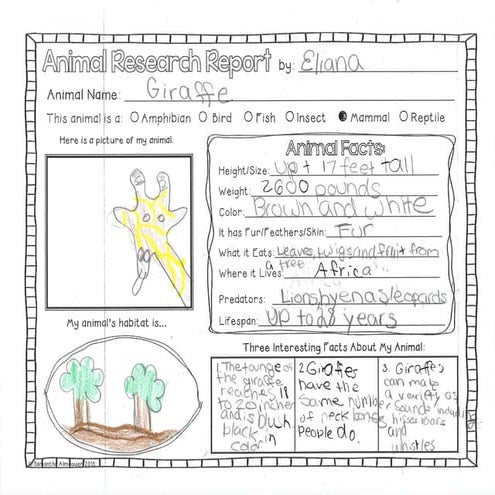 Animal Research Report by: Eliana
Animal Name: Giraffe
This animal is a: Amphibian Bird Fish Insect Mammal Reptile
Here is a picture of my animal.
Animal Facts:
Height/Size: up t 17 feet tall
Weight: 2600 pounds
Color: Brown and white
It has Fur/Feathers/Skin: Fur
What it Eats: Leaves, twigs and fruit from
a tree.
Where it Lives: Africa
Predators: Lions hyenas leopards
Lifespan: up to 28 years
My animal's habitat is...
Three Interesting Facts About My Animal:
1. The tounge of
the giraffe
reaches 18
to 20 inches
and is bluish
black
color in
2. Giraffes
have the
same number
of neck bones
people do.
3. Giraffes
can make
a variety of
sounds including
hisses roars
and
whistles.